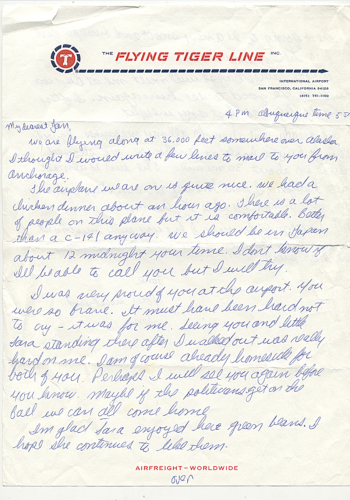 T
THE FLYING TIGER LINE INC.
INTERNATIONAL AIRPORT
SAN FRANCISCO, CALIFORNIA 94128
4 P.M. Albuquerque time 5
My dearest Jan,
We are flying along at 36,000 feet somewhere over Alaska
I thought I would write a few lines to mail to you from
Anchorage.
The airplane we are on is quite nice. We had a
chicken dinner about an hour ago. There is a lot
of people on this plane but it is comfortable. Better
than a C-141 anyway. We should be in Japan
about 12 midnight your time. I don't know if
I'll be able to call you but I will try.
I was very proud of you at the airport. You
were so brave. It must have been hard not
to cry - it was for me. Seeing you and little
Tara standing there after I walked out was really
hard on me. I am of course already homesick for
both of you. Perhaps I will see you again before
you know. Maybe if the politicians get on the
ball we can all come home.
I'm glad Tara enjoyed her green beans. I
hope she continues to like them.
AIRFREIGHT-WORLDWIDE
over